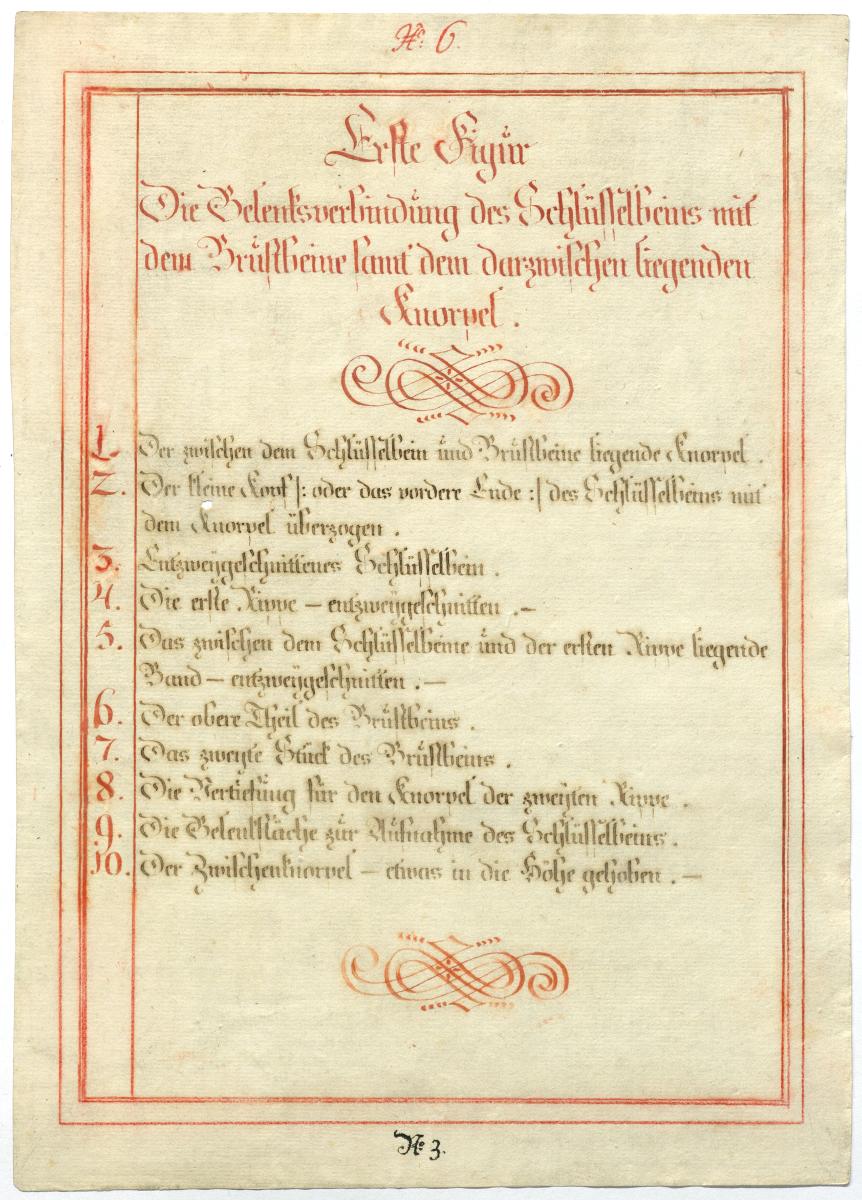 No. 6.
Erste Figur
Die Gelenksverbindung des Schlüsselbeins mit
dem Brustbeine samt dem darzwischen liegenden
Knorpel.
1. Der zwischen dem Schlüsselbein und Brustbeine liegende Knorpel.
2. Der kleine Kopf |: oder das vordere Ende :| des Schlüsselbeins mit
dem Knorpel überzogen.
3. Entzweygeschnittenes Schlüsselbein.
4. Die erste Rippe – entzweygeschnitten. –
5. Das zwischen dem Schlüsselbeine und der ersten Rippe liegende
Band – entzweygeschnitten. –
6. Der obere Theil des Brustbeins.
7. Das zweyte Stück des Brustbeins.
8. Die Vertiefung für den Knorpel der zweyten Rippe.
9. Die Gelenkfläche zur Aufnahme des Schlüsselbeins.
10. Der Zwischenknorpel – etwas in die Höhe gehoben. –
No. 3.